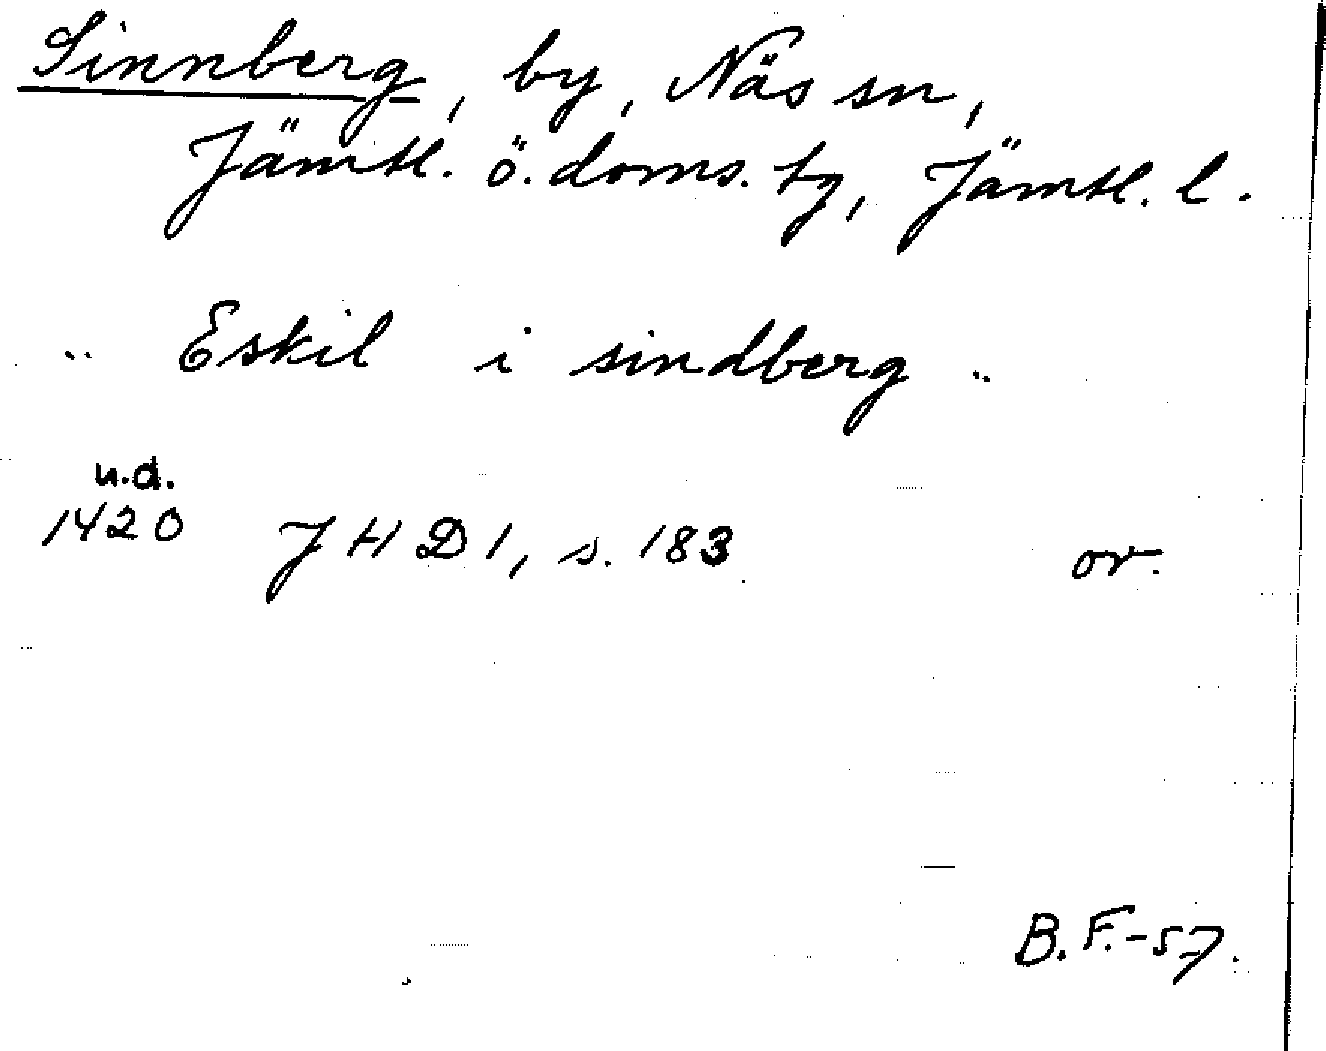 Sinnberg, by, Näs sn,
Jämtl. ö. doms. tg, Jämtl. l.
" Eskil i sindberg "
u.d.
1420 JHD 1, s. 183 or.
B. F. -57.